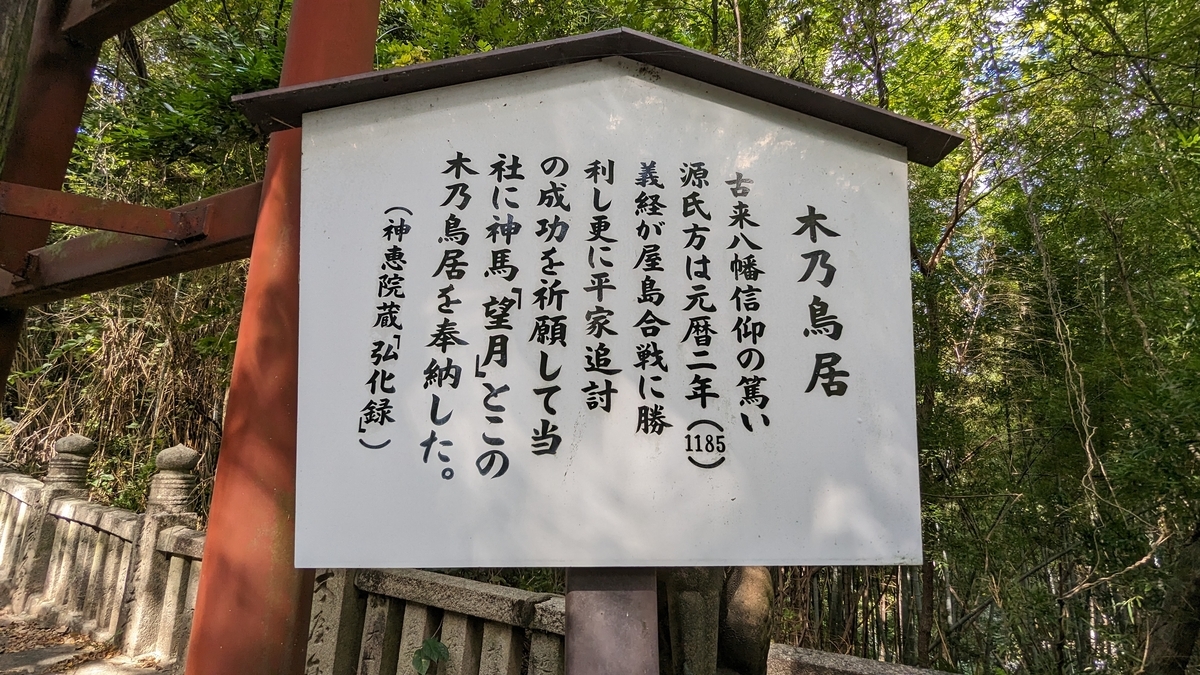 木乃鳥居
古来八幡信仰の篤い
源氏方は元暦二年(1185)
義経が屋島合戦に勝
利し更に平家追討
の成功を祈願して当
社に神馬「望月」とこの
木乃鳥居を奉納した。
(神恵院蔵「弘化録」)